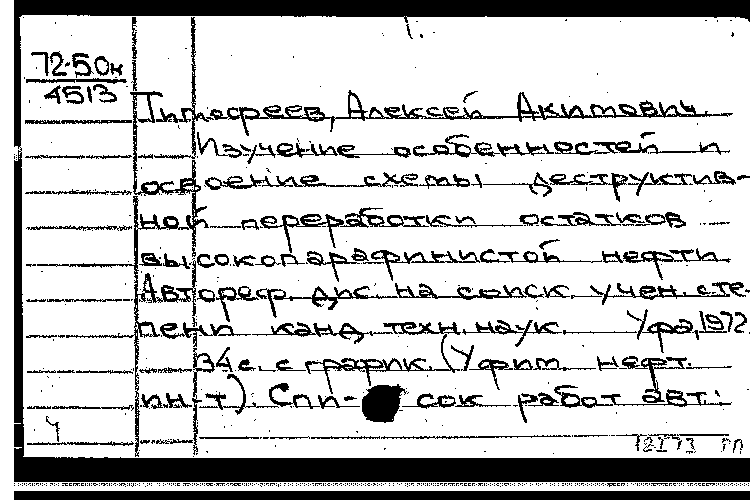 1.
72-50н
4513
Тимофеев, Алексей Акимович.
Изучение особенностей и
освоение схемы деструктив-
ной переработки остатков
высокопарафинистой нефти
Автореф. дис. на соиск. учен. сте-
пени канд. техн. наук. Уфа, 1972.
34 с. с график. (Уфим. нефт.
ин-т). Спи-сок работ авт.:
Ч